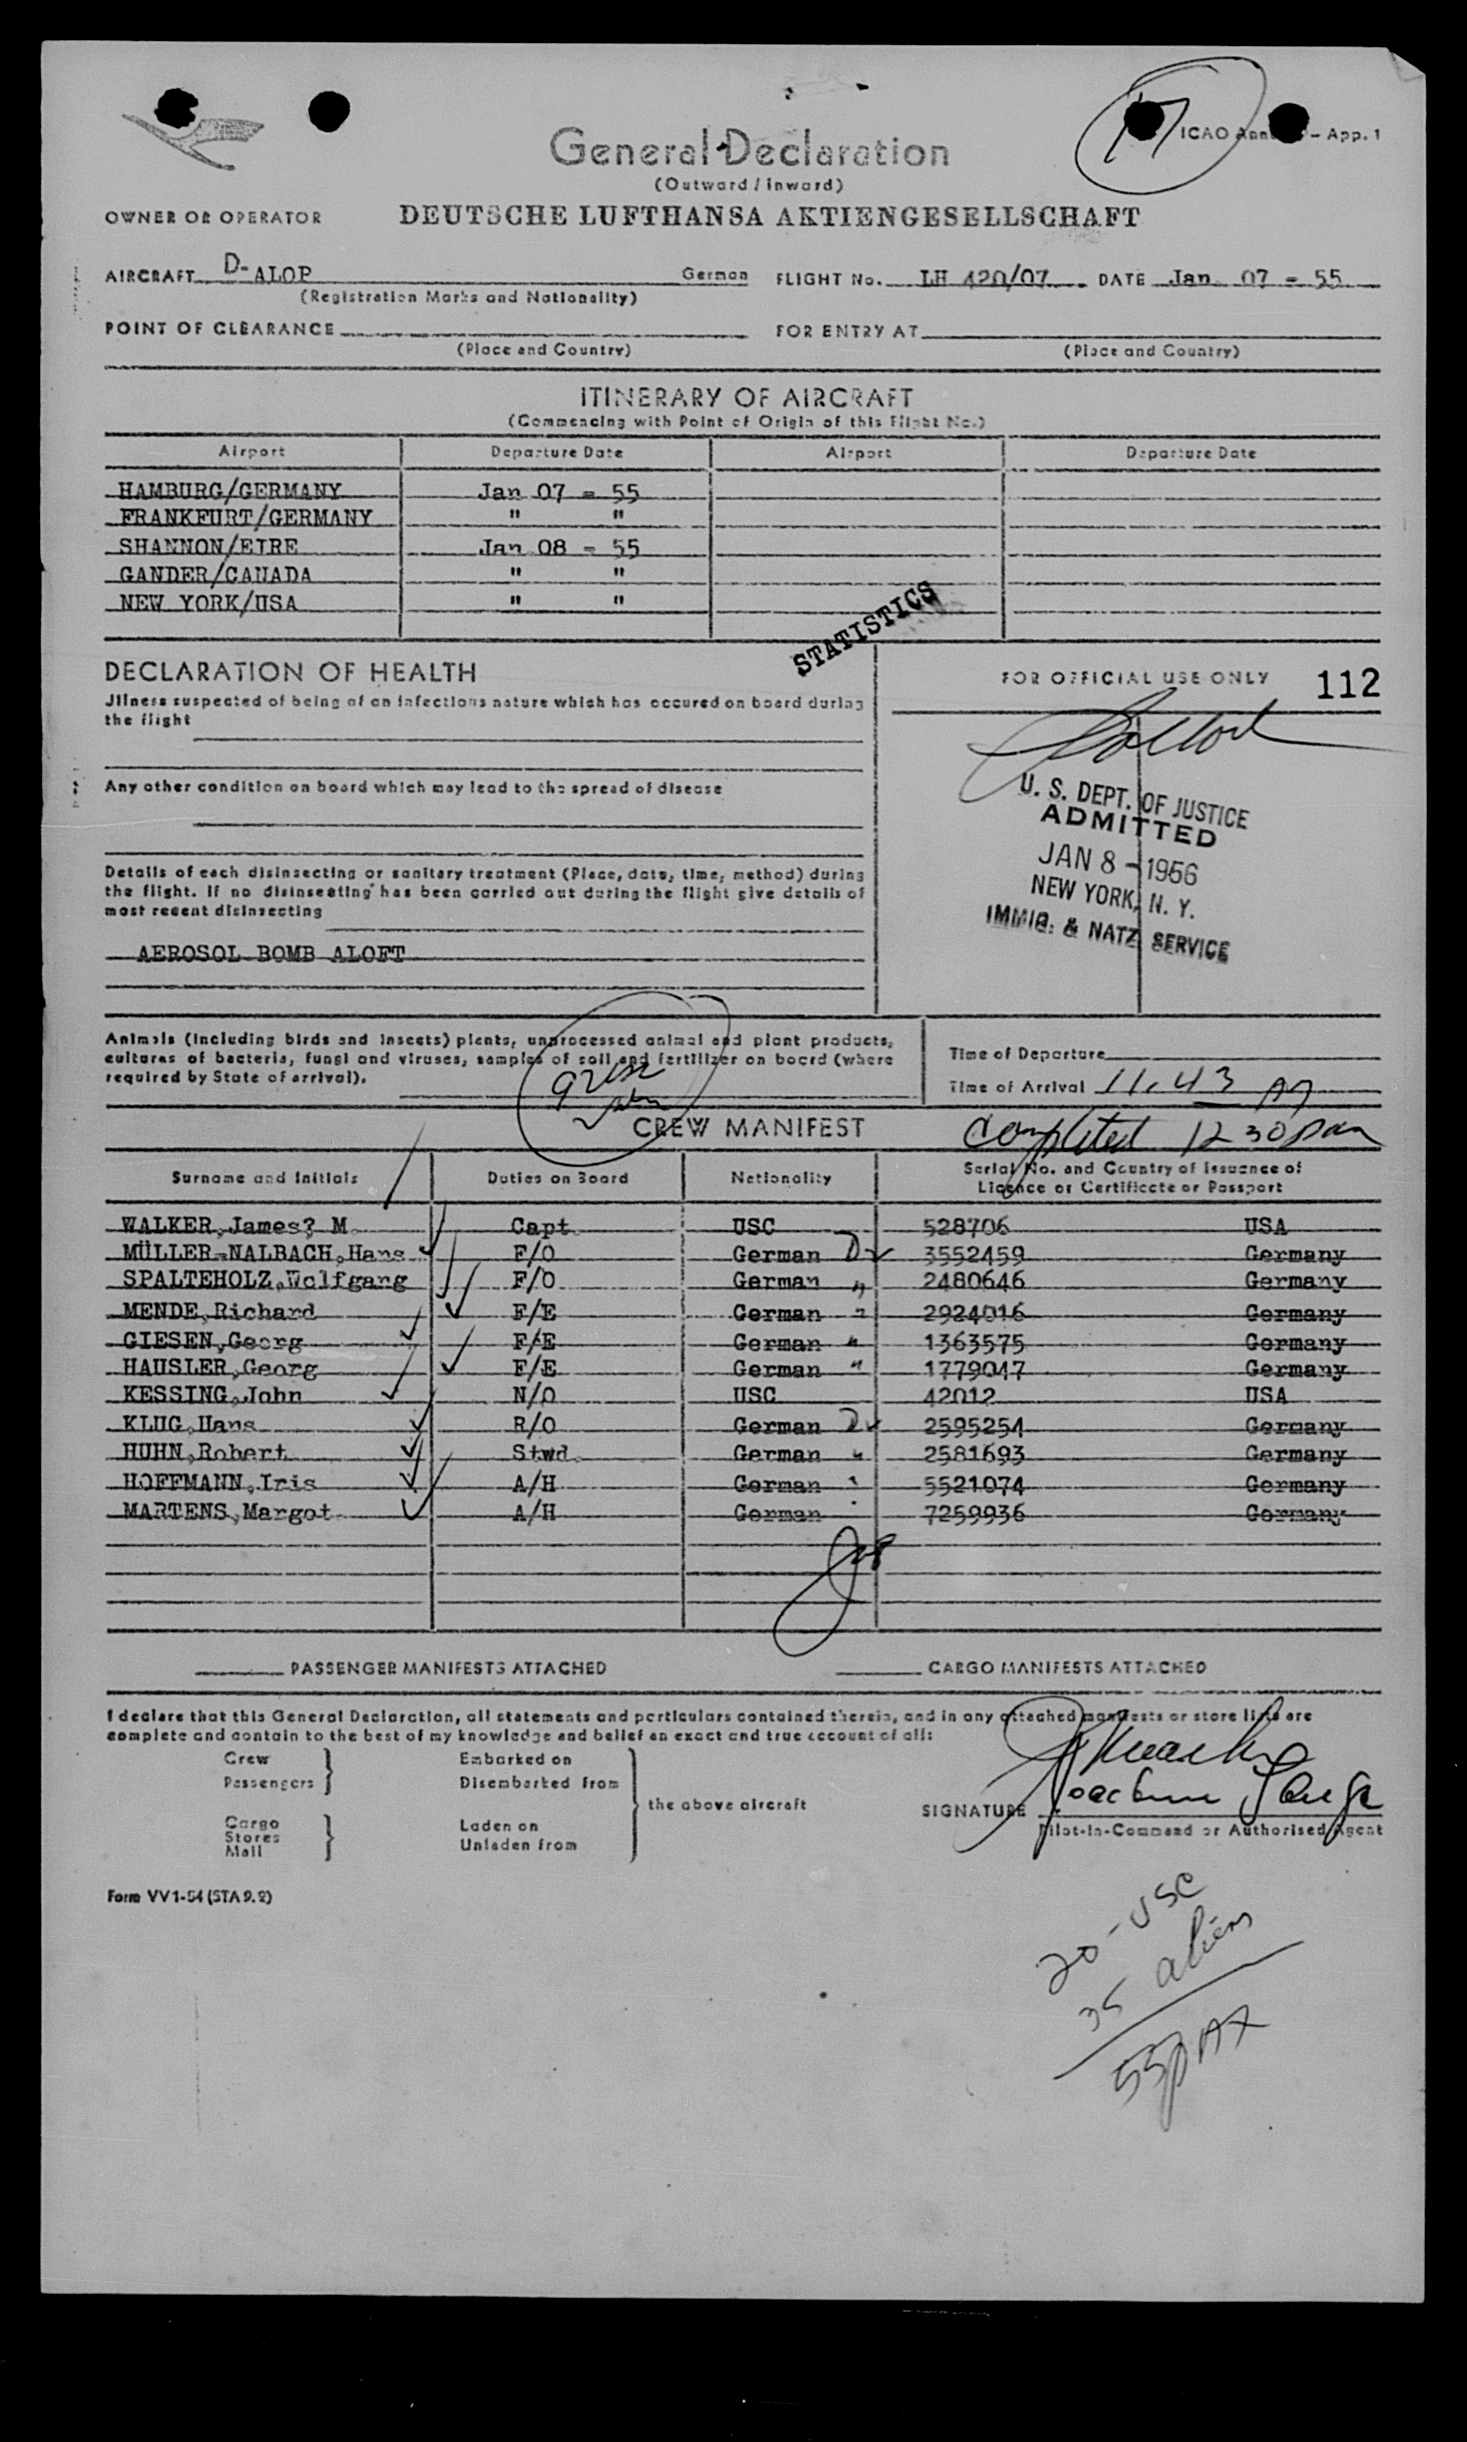 17
ICAO Ann - App. 1
General Declaration
(Outward / Inward)
OWNER OR OPERATOR DEUTSCHE LUFTHANSA AKTIENGESELLSCHAFT
AIRCRAFT D-ALOP German FLIGHT No. LH 420/07 DATE Jan 07 - 55
(Registration Marks and Nationality)
POINT OF CLEARANCE FOR ENTRY AT
(Place and Country) (Place and Country)
ITINERARY OF AIRCRAFT
(Commencing with Point of Origin of this Flight No.)
Airport Departure Date Airport Departure Date
HAMBURG/GERMANY Jan 07 - 55
FRANKFURT/GERMANY " "
SHANNON/EIRE Jan 08 - 55
GANDER/CANADA " "
NEW YORK/USA " "
STATISTICS
DECLARATION OF HEALTH
FOR OFFICIAL USE ONLY 112
Jllness suspected of being of an infectious nature which has occured on board during
the flight
Any other condition on board which may lead to the spread of disease
U. S. DEPT. OF JUSTICE
ADMITTED
JAN 8 - 1956
NEW YORK, N. Y.
IMMIG. & NATZ SERVICE
Details of each disinsecting or sanitary treatment (Place, date, time, method) during
the flight. If no disinsecting has been carried out during the flight give details of
most recent disinsecting
AEROSOL BOMB ALOFT
Animals (including birds and insects) plants, unprocessed animal and plant products,
cultures of bacteria, fungi and viruses, samples of soil and fertilizer on board (where
required by State of arrival).
Time of Departure
Time of Arrival 11.43 AM
CREW MANIFEST
Completed 12 30 pm
Surname and Initials Duties on Board Nationality Serial No. and Country of Issuence of
Licence or Certificate or Passport
WALKER,James? M. Capt. USC 528706 USA
MÜLLER-NALBACH,Hans F/O German D 3552459 Germany
SPALTEHOLZ,Wolfgang F/O German " 2480646 Germany
MENDE,Richard F/E German " 2924016 Germany
GIESEN,Georg F/E German " 1363575 Germany
HAUSLER,Georg F/E German " 1779047 Germany
KESSING,John N/O USC 42012 USA
KLUG,Hans R/O German D 2595254 Germany
HUHN,Robert Stwd. German " 2581693 Germany
HOFFMANN,Iris A/H German " 5521074 Germany
MARTENS,Margot A/H German " 7259936 Germany
PASSENGER MANIFESTS ATTACHED CARGO MANIFESTS ATTACHED
I declare that this General Declaration, all statements and particulars contained therein, and in any attached manifests or store lists are
complete and contain to the best of my knowledge and belief an exact and true account of all:
Crew Embarked on
Passengers Disembarked from
the above aircraft
Cargo Laden on
Stores
Mail Unladen from
SIGNATURE
Pilot-in-Command or Authorised Agent
Form VV 1-54 (STA 9.2)
20 - USC
35 aliens
55 PAX